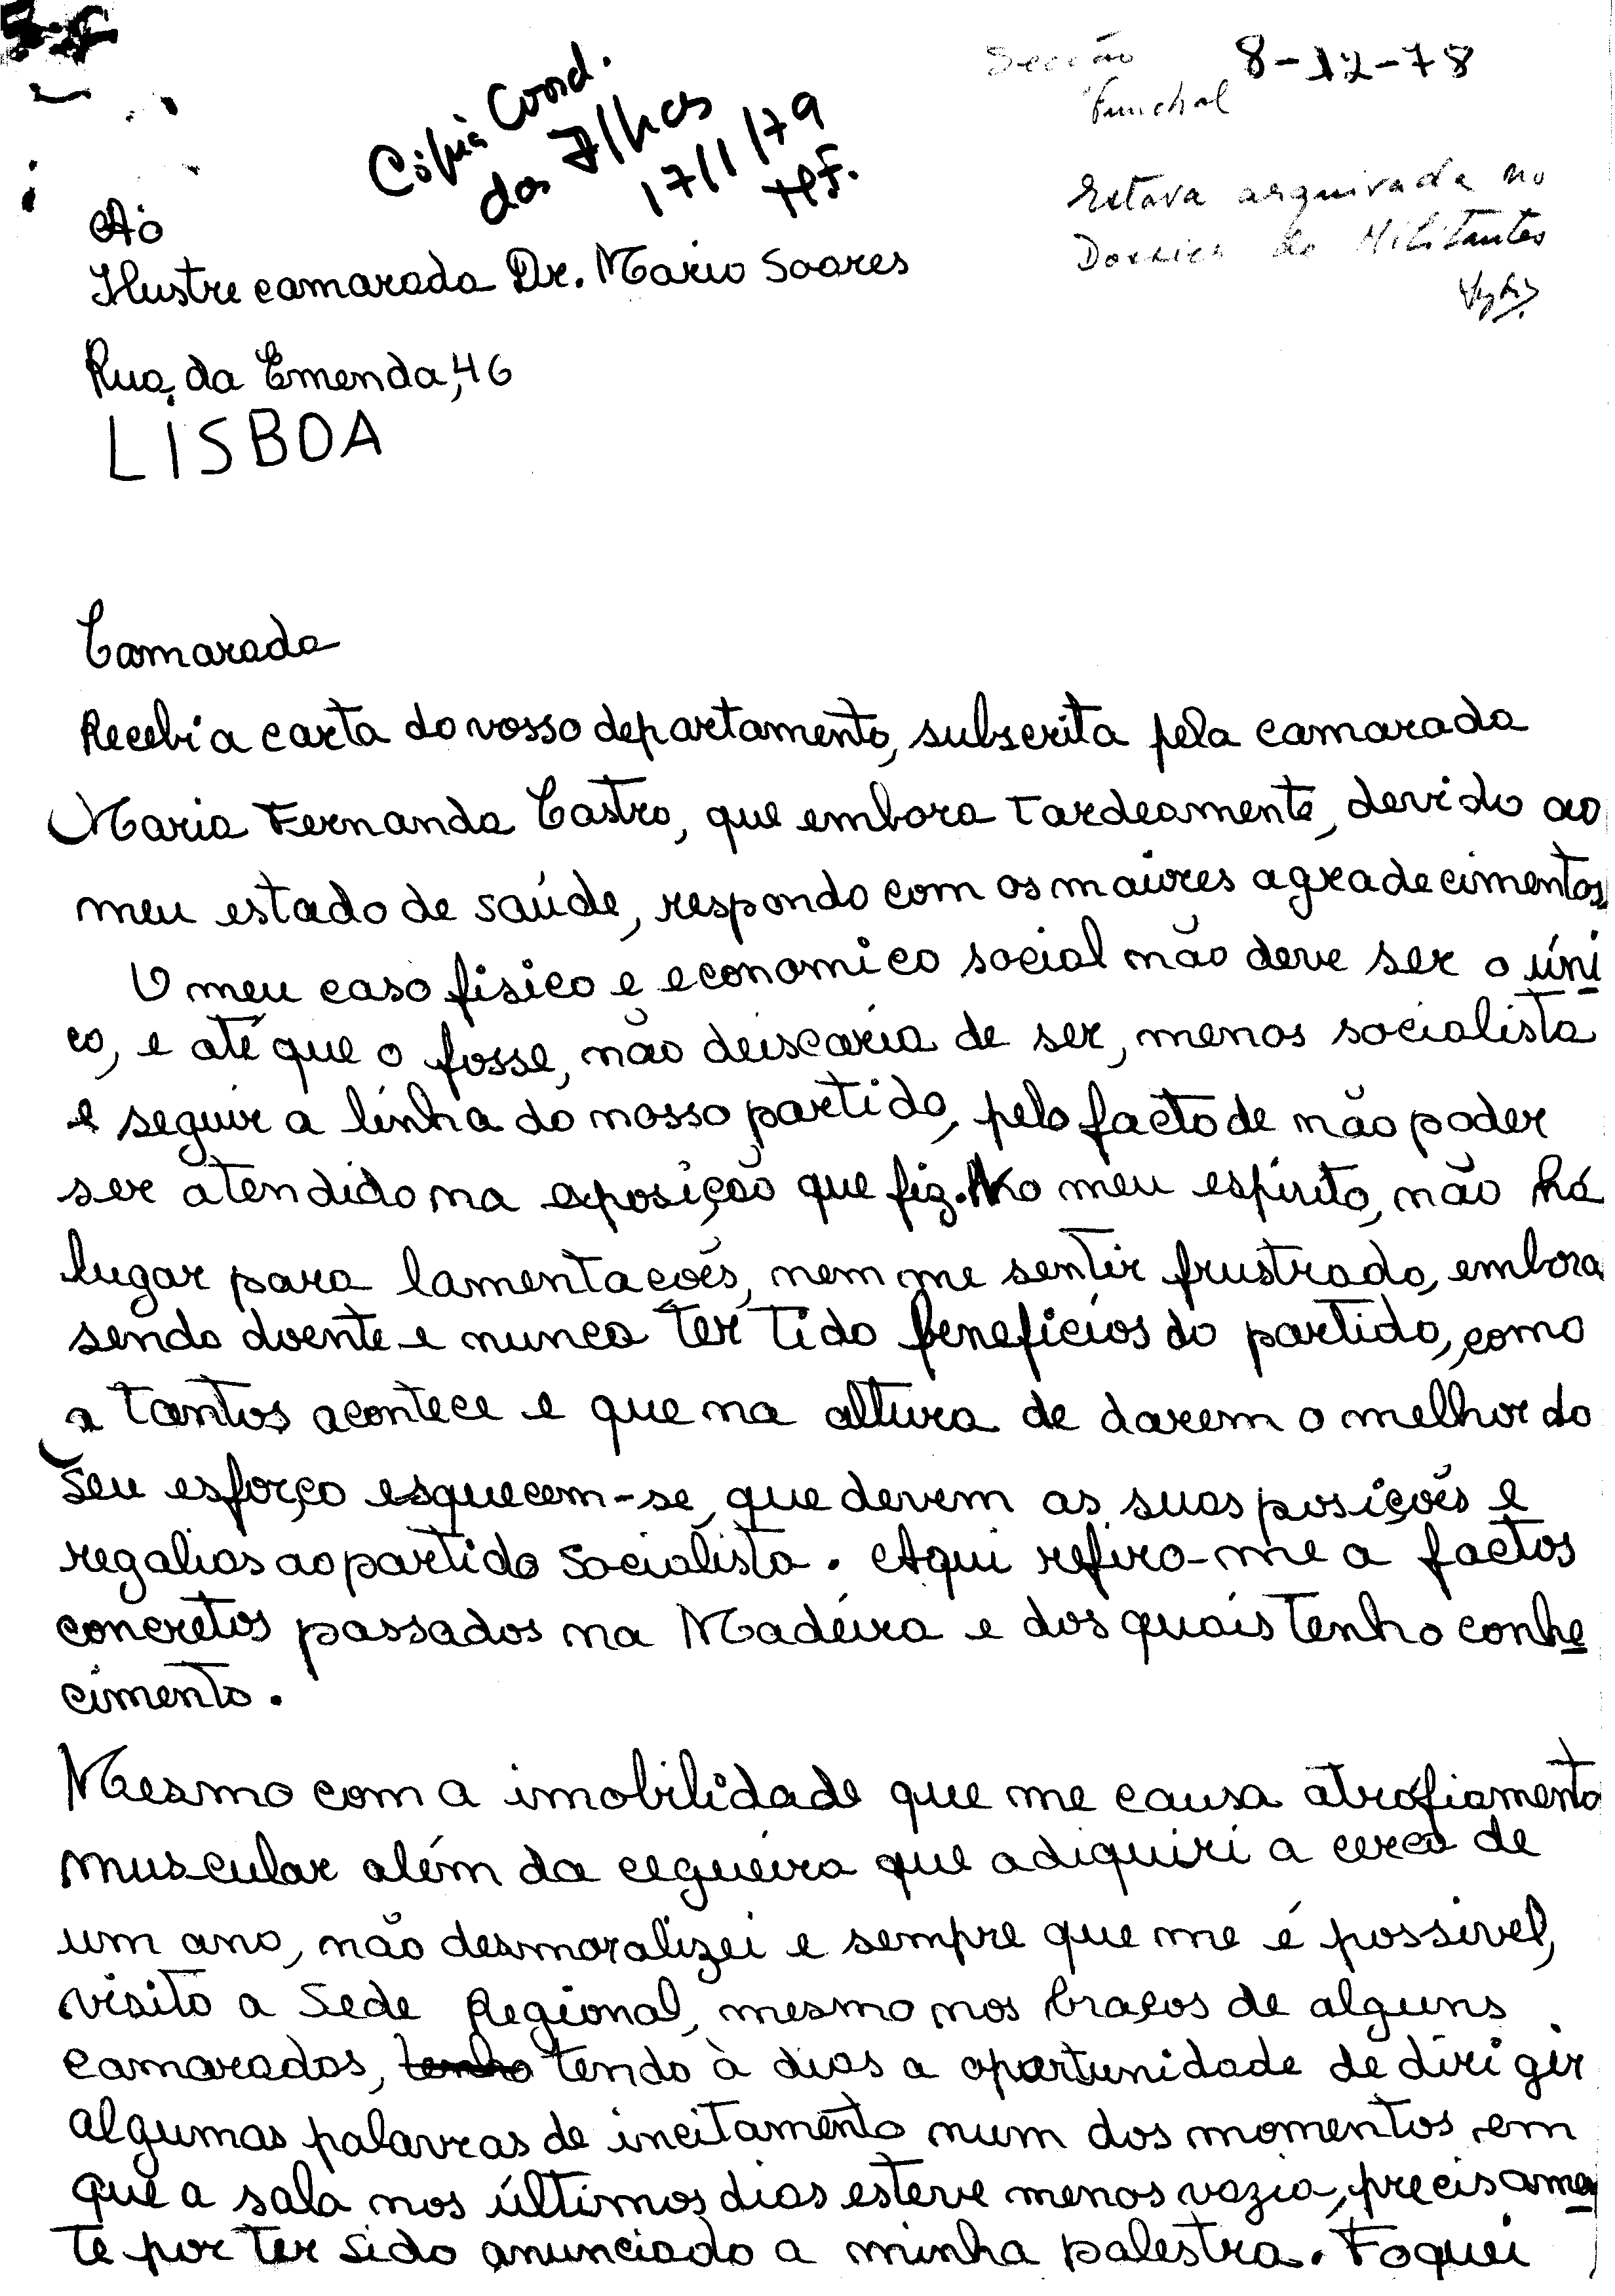 Secção 8-12-78
Funchal
Cópia Coord.
das Ilhas
17/1/79
Estava arquivada no
Dossier de Militantes
Ao
Ilustre camarada Dr. Mario Soares
Rua da Emenda, 46
LISBOA
Camarada
Recebi a carta do vosso departamento, subscrita pela camarada
Maria Fernanda Castro, que embora tardeamente, devido ao
meu estado de saúde, respondo com os maiores agradecimentos.
O meu caso fisico e economico social não deve ser o úni
co, e até que o fosse, não deiscaria de ser, menos socialista
e seguir a linha do nosso partido, pelo facto de não poder
ser atendido na esposição que fiz. No meu espírito, não há
lugar para lamentacões, nem me sentir frustrado, embora
sendo doente e nunca ter tido beneficios do partido, como
a tantos acontece e que na altura de darem o melhor do
seu esforço esquecem-se, que devem as suas posições e
regalias ao partido Socialista. Aqui refiro-me a factos
concretos passados na Madeira e dos quais tenho conhe
cimento.
Mesmo com a imobilidade que me causa atrofiamento
muscular além da cegueira que adiquiri a cerca de
um ano, não desmoralizei e sempre que me é possivel,
visito a Sede Regional, mesmo nos braços de alguns
camaradas, tenho tendo à dias a oportunidade de dirigir
algumas palavras de incitamento num dos momentos em
que a sala nos últimos dias esteve menos vazia, precisamen
te por ter sido anunciado a minha palestra. Foquei